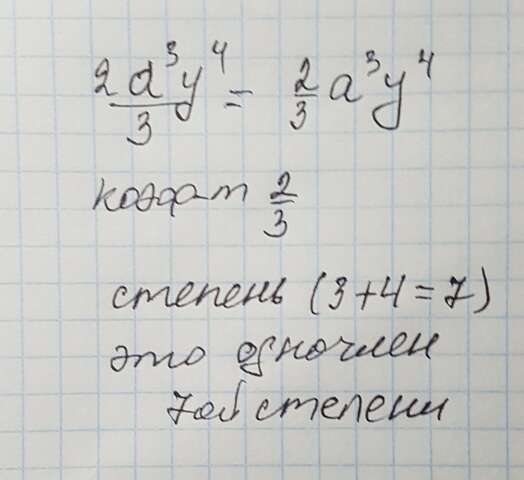 2a³y⁴/3 = 2/3 a³y⁴
коэфат 2/3
степень (3+4=7)
это одночлен
7ой степени